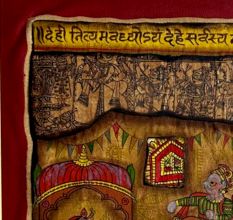 ॥ देही नित्यमवध्योऽयं देहे सर्वस्य